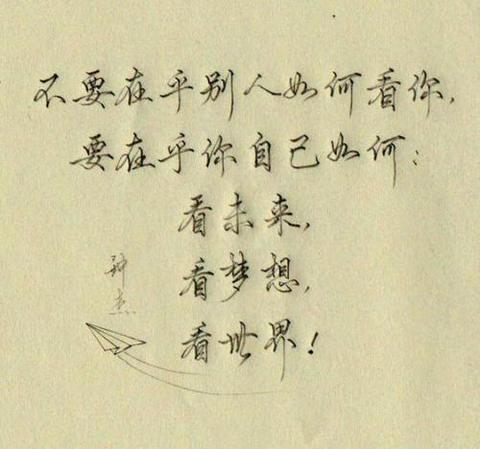 不要在乎别人如何看你，
要在乎你自己如何：
看未来，
看梦想，
看世界！
钟杰